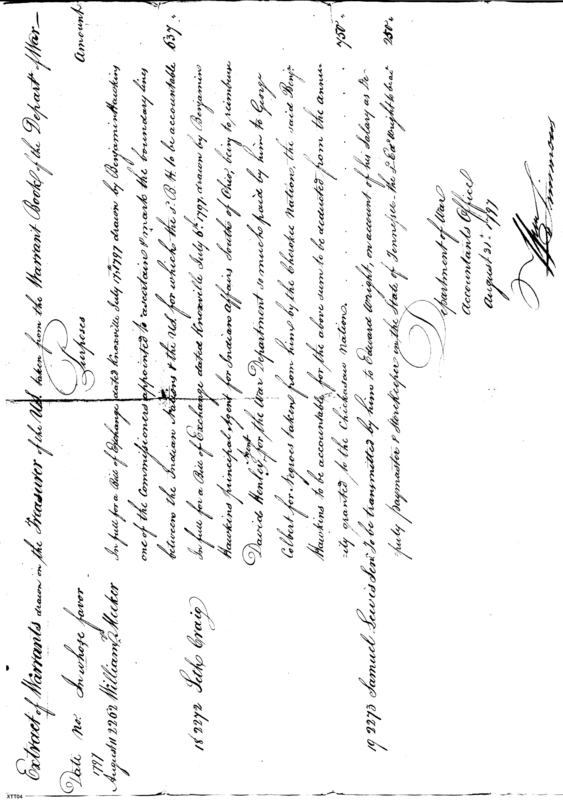 Extract of Warrants drawn on the Treasurer of the U.S. taken from the Warrant Book of the Depart. of War—
Date No. In whose favor Purposes Amount
1797
August 11 2262 William Meeker In full for a Bill of Exchange dated Knoxville July 17th 1797 drawn by Benjamin Hawkins
one of the Commissioners appointed to ascertain & mark the boundary lines
between the Indian Nations & the U.S. for which the sd. B.H. to be accountable 637.
18 2272 Seth Craig In full for a Bill of Exchange dated Knoxville July 6th 1797. drawn by Benjamin
Hawkins principal Agent for Indian Affairs South of Ohio; being to reimburse
David Henley Agent for the War Department so much paid by him to George
Colbert for Negroes taken from him by the Cherokee Nations, the said Benjn.
Hawkins to be accountable for the above sum to be deducted from the annu-
ity granted to the Chickasaw Nation . . . . . . . . . . 750.
19 2273 Samuel Lewis Senr. To be transmitted by him to Edward Wright, on account of his Salary as De-
puty paymaster & Storekeeper in the State of Tennessee the sd. Ed. Wright to be acct. 250.
Department of War
Accountants Office
August 21st. 1797
Wm Simmons
XTT04